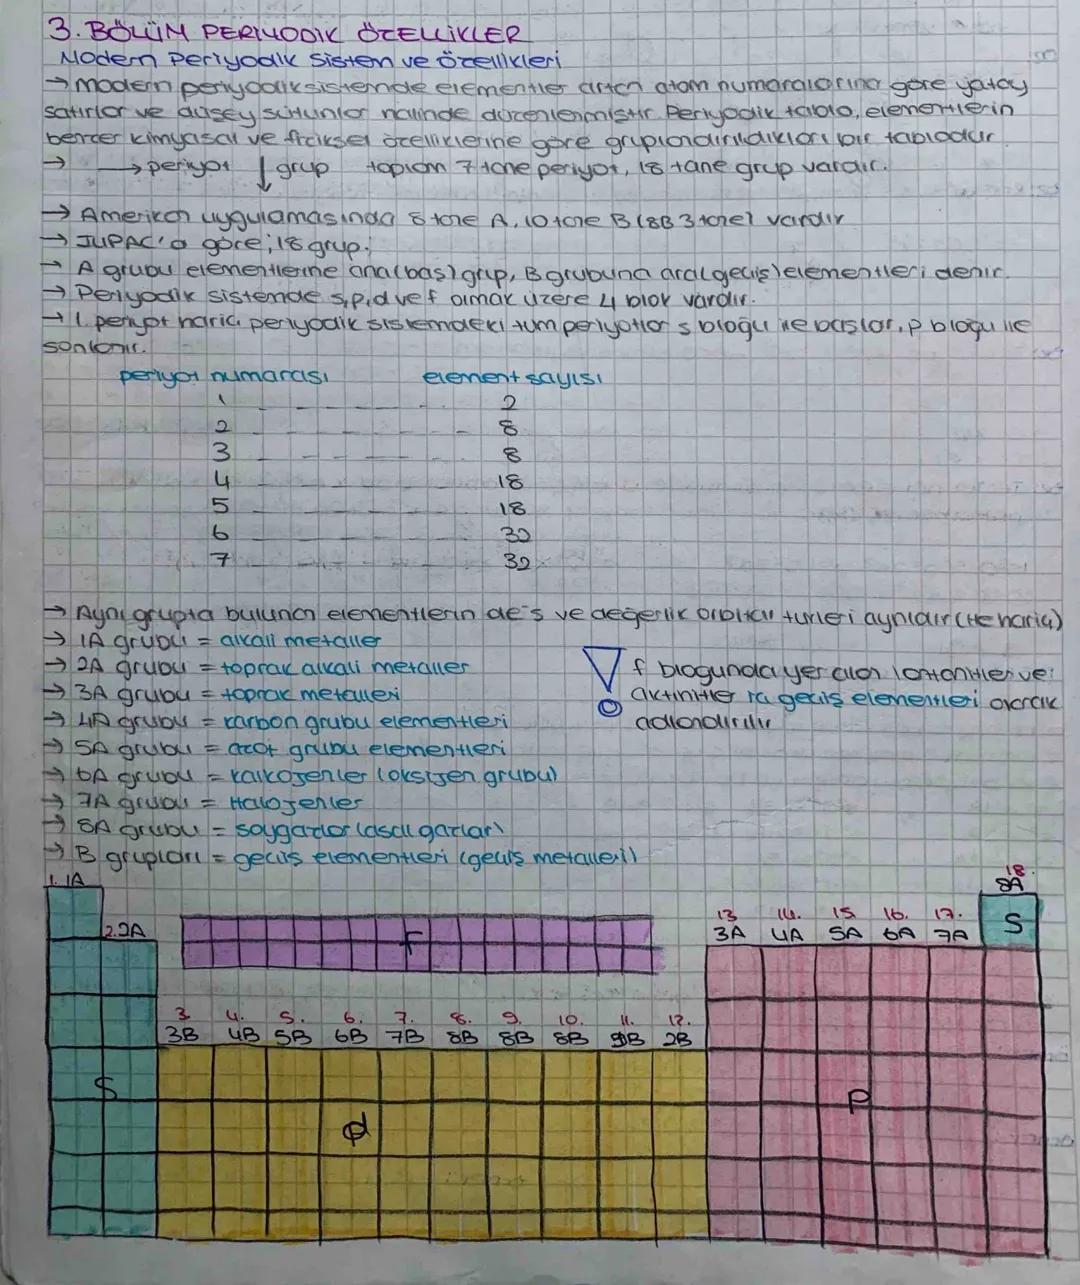 3. BÖLÜM PERİYODİK ÖZELLİKLER
Modern Periyodik Sistem ve Özellikleri
→ modern periyodik sistemde elementler artan atom numaralarına göre yatay
satırlar ve düşey sütunlar halinde düzenlenmiştir. Periyodik tablo, elementlerin
benzer kimyasal ve fiziksel özelliklerine göre gruplandırıldıkları bir tablodur.
→ → periyot ↓ grup toplam 7 tane periyot, 18 tane grup vardır.
→ Amerikan uygulamasında 8 tane A, 10 tane B (8B 3 tane) vardır
→ IUPAC'a göre; 18 grup;
→ A grubu elementlerine ana(baş) grup, B grubuna ara(geçiş) elementleri denir.
→ Periyodik sistemde s,p,d ve f olmak üzere 4 blok vardır.
→ 1. periyot hariç periyodik sistemdeki tüm periyotlar s bloğu ile başlar, p bloğu ile
sonlanır.
periyot numarası element sayısı
1 2
2 8
3 8
4 18
5 18
6 32
7 32
→ Aynı grupta bulunan elementlerin de's ve değerlik orbital türleri aynıdır (He hariç)
→ 1A grubu = alkali metaller
→ 2A grubu = toprak alkali metaller
→ 3A grubu = toprak metalleri
→ 4A grubu = karbon grubu elementleri
→ 5A grubu = azot grubu elementleri
→ 6A grubu = kalkojenler (oksijen grubu)
→ 7A grubu = Halojenler
→ 8A grubu = soygazlar (asal gazlar)
→ B grupları = geçiş elementleri (geçiş metalleri)
f bloğunda yer alan lantanitler ve
aktinitler iç geçiş elementleri olarak
adlandırılır
1. 1A
18.
8A
2. 2A
F
13 14. 15 16. 17.
3A 4A 5A 6A 7A
S
3. 4. 5. 6. 7. 8. 9. 10. 11. 12.
3B 4B 5B 6B 7B 8B 8B 8B 1B 2B
S
d
P